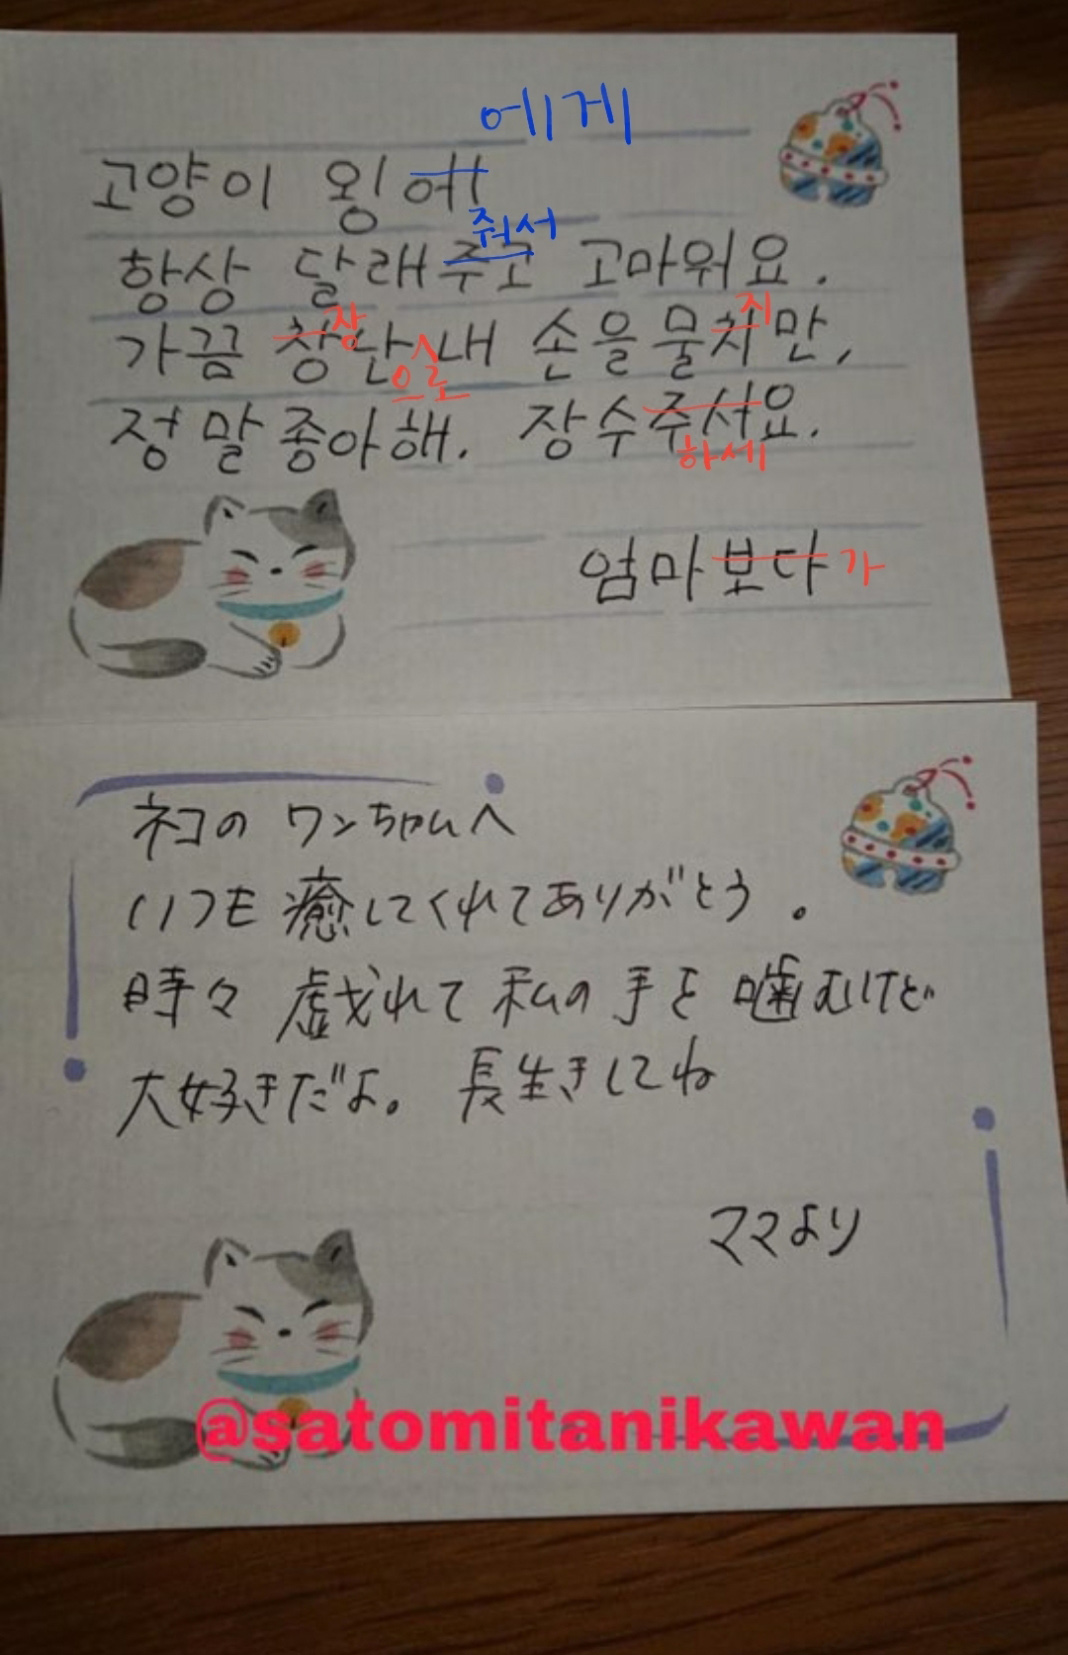 에게
고양이 왕에
줘서
항상 달래주고 고마워요.
장 지
가끔 창난 내 손을 물치만,
으로
정말 좋아해. 장수주서요.
하세
엄마보다 가
ネコの ワンちゃんへ
いつも 癒してくれてありがとう。
時々 戯れて 私の 手を 噛むけど
大好きだよ。 長生きしてね
ママより
@satomitanikawan